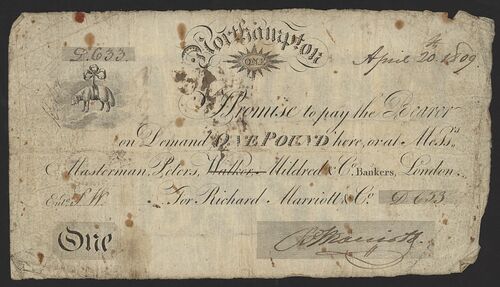 D.633.
Northampton
ONE
April 20th 1809
I Promise to pay the Bearer
on Demand ONE POUND here, or at Messrs.
Masterman, Peters, Walker, Mildred & Co. Bankers, London.
Entd. For Richard Marriott & Co. D.633
One
R Marriott